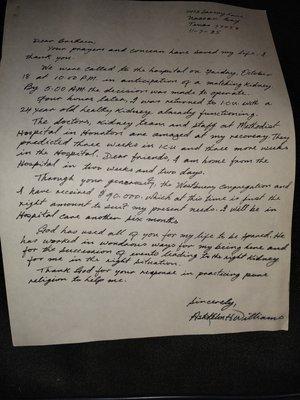 Nassau Bay
Texas 77058
11-7-85
Dear Brethren,
Your prayers and concern have saved my life. I
thank you.
We were called to the hospital on Friday, October
18 at 10:00 P.M. in anticipation of a matching kidney.
By 5:00 AM the decision was made to operate.
Four hours later, I was returned to ICU with a
24 year old healthy kidney already functioning.
The doctors, kidney team and staff at Methodist
Hospital in Houston are amazed at my recovery. They
predicted three weeks in ICU and three more weeks
in the Hospital. Dear friends, I am home from the
Hospital in two weeks and two days.
Through your generosity, the Westbury Congregation and
I have received $90,000. which at this time is just the
right amount to suit my present needs. I will be in
Hospital care another six months.
God has used all of you for my life to be spared. He
has worked in wondrous ways for my being here and
for the succession of events leading to the right kidney
for me in the right situation.
Thank God for your response in practicing pure
religion to help me.
Sincerely,
Williams